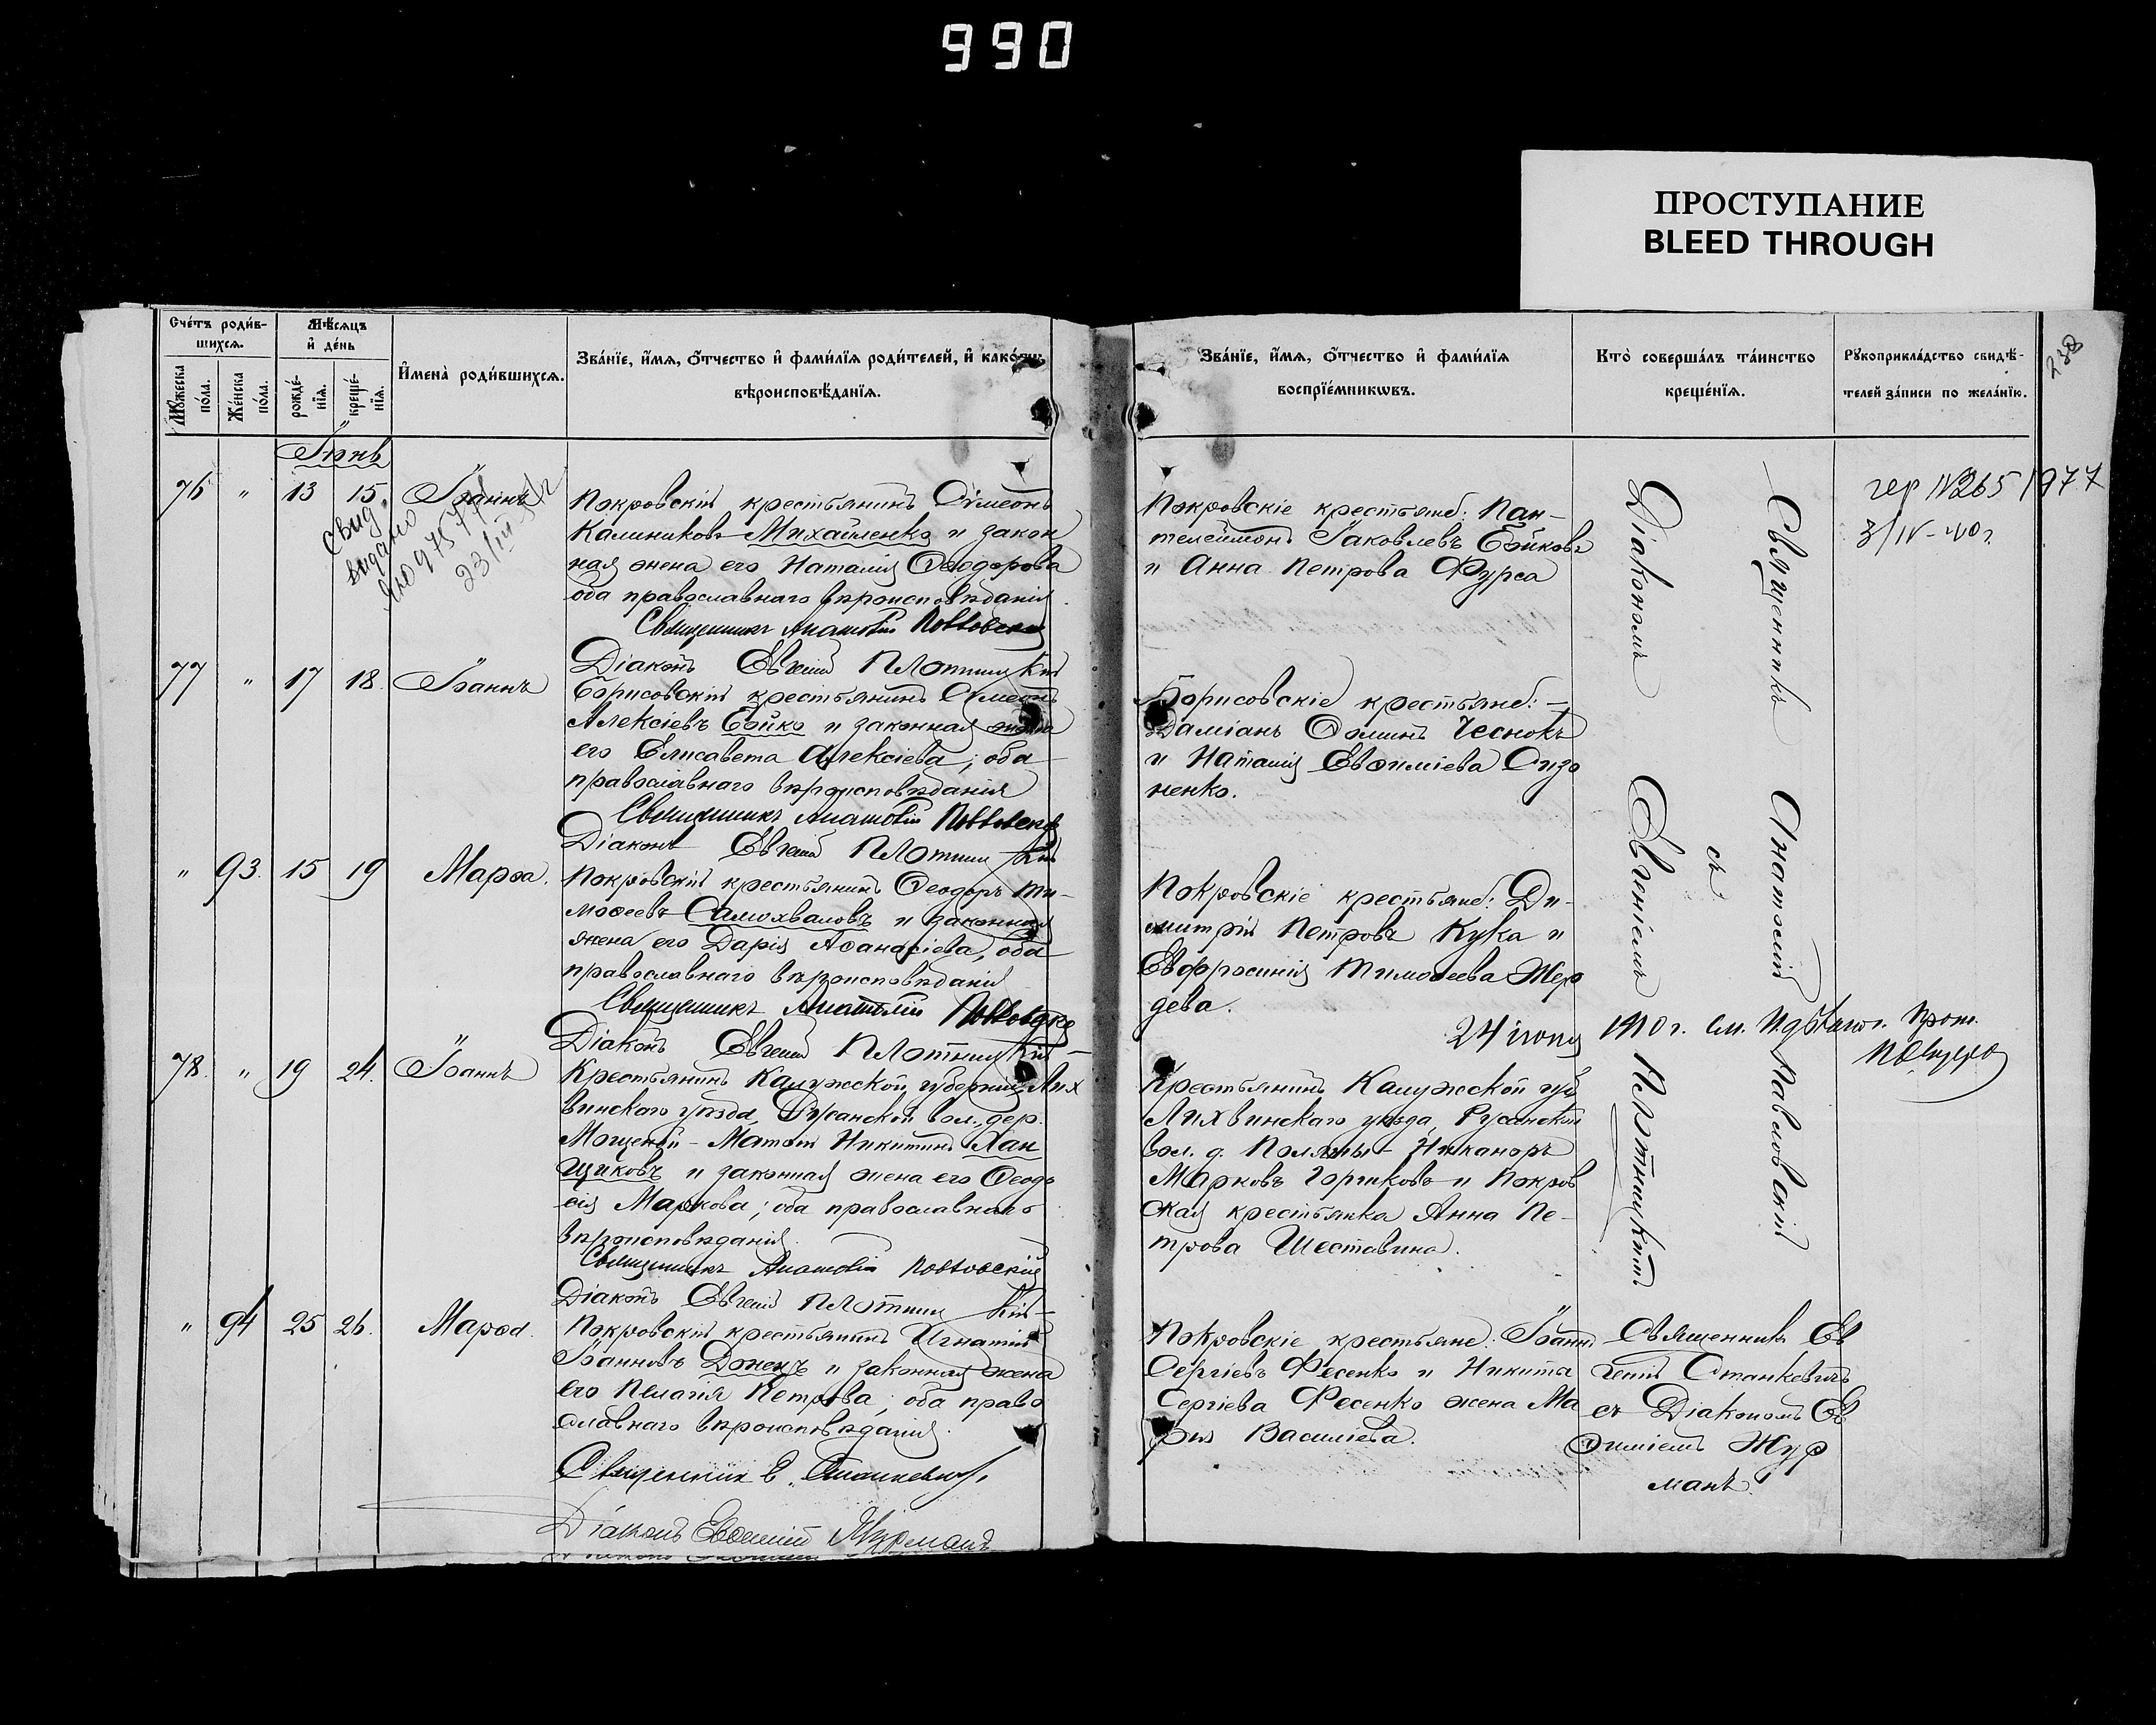 990
ПРОСТУПАНИЕ
BLEED THROUGH
238
Счётъ роди́в-
шихся.
Мѣ́сяцъ
и҆ де́нь
Мꙋ́жеска
по́ла.
Же́нска
по́ла.
рожде́-
нїѧ.
креще́-
нїѧ.
И҆мена̀ роди́вшихсѧ.
Зва́нїе, и҆́мѧ, ѻ҆́тчество и҆ фами́лїѧ роди́телей, и҆ како́гѡ
вѣроисповѣ́данїѧ.
Зва́нїе, и҆́мѧ, ѻ҆́тчество и҆ фами́лїѧ
воспрїе́мникѡвъ.
Кто̀ соверша́лъ та́инство
креще́нїѧ.
Рꙋкоприкла́дство свидѣ́-
телей за́писи по жела́нїю.
Іюнь
76 " 13 15. Іоаннъ
Свид.
выдано
23/III
Покровскій крестьянинъ Сѵмеонъ
Калиниковъ Михайленко и закон
ная жена его Наталія Ѳеодорова
оба православнаго вѣроисповѣданія.
Священникъ Анатолій Павловскій
Діаконъ Евгеній Плотницкій
Покровскіе крестьяне: Пан-
телеймонъ Іаковлевъ Бойковъ
и Анна Петрова Фурса
гер №265 1977
3/IV-40 г.
77 " 17 18. Іоаннъ
Борисовскій крестьянинъ Сѵмеонъ
Алексіевъ Бойко и законная жена
его Елисавета Алексіева; оба
православнаго вѣроисповѣданія
Священникъ Анатолій Павловскій
Діаконъ Евгеній Плотницкій
Борисовскіе крестьяне: –
Даміанъ Ѳоминъ Чеснокъ
и Наталія Евѳиміева Сидо
ненко.
" 93. 15 19 Марѳа.
Покровскій крестьянинъ Ѳеодоръ Ти-
моѳеевъ Самохваловъ и законная
жена его Дарія Аѳанасіева, оба
православнаго вѣроисповѣданія
Священникъ Анатолій Павловскій
Діаконъ Евгеній Плотницкій
Покровскіе крестьяне: Ди-
митрій Петровъ Кука и
Евфросинія Тимоѳеева Жер
дева.
24 іюня 1910 г. Прот.
78. " 19 24. Іоаннъ
Крестьянинъ Калужской губерніи Лих
винскаго уѣзда, Русанской вол., дер.
Мощеной – Матѳій Никитинъ Лан
щиковъ и законная жена его Ѳеодо
сія Маркова; оба православнаго
вѣроисповѣданія.
Священникъ Анатолій Павловскій
Діаконъ Евгеній Плотницкій
Крестьянинъ Калужской губ.
Лихвинскаго уѣзда, Русанской
вол. д. Поляны – Никаноръ
Марковъ Горшковъ и Покров
ская крестьянка Анна Пе-
трова Шеставина.
Священникъ Анатолій Павловскій
съ
Діакономъ Евгеніемъ Плотницкимъ
" 94 25 26. Марѳа.
Покровскій крестьянинъ Игнатій
Іоанновъ Донецъ и законная жена
его Пелагія Петрова; оба право
славнаго вѣроисповѣданія.
Священникъ Е. Станкевичъ
Діаконъ Евѳимій Журманъ
Покровскіе крестьяне: Іоаннъ
Сергіевъ Фесенко и Никита
Сергіева Фесенко жена Ма
рія Василіева.
Священникъ Ев
геній Станкевичъ
съ Діакономъ Ев
ѳиміемъ Жур
манъ.